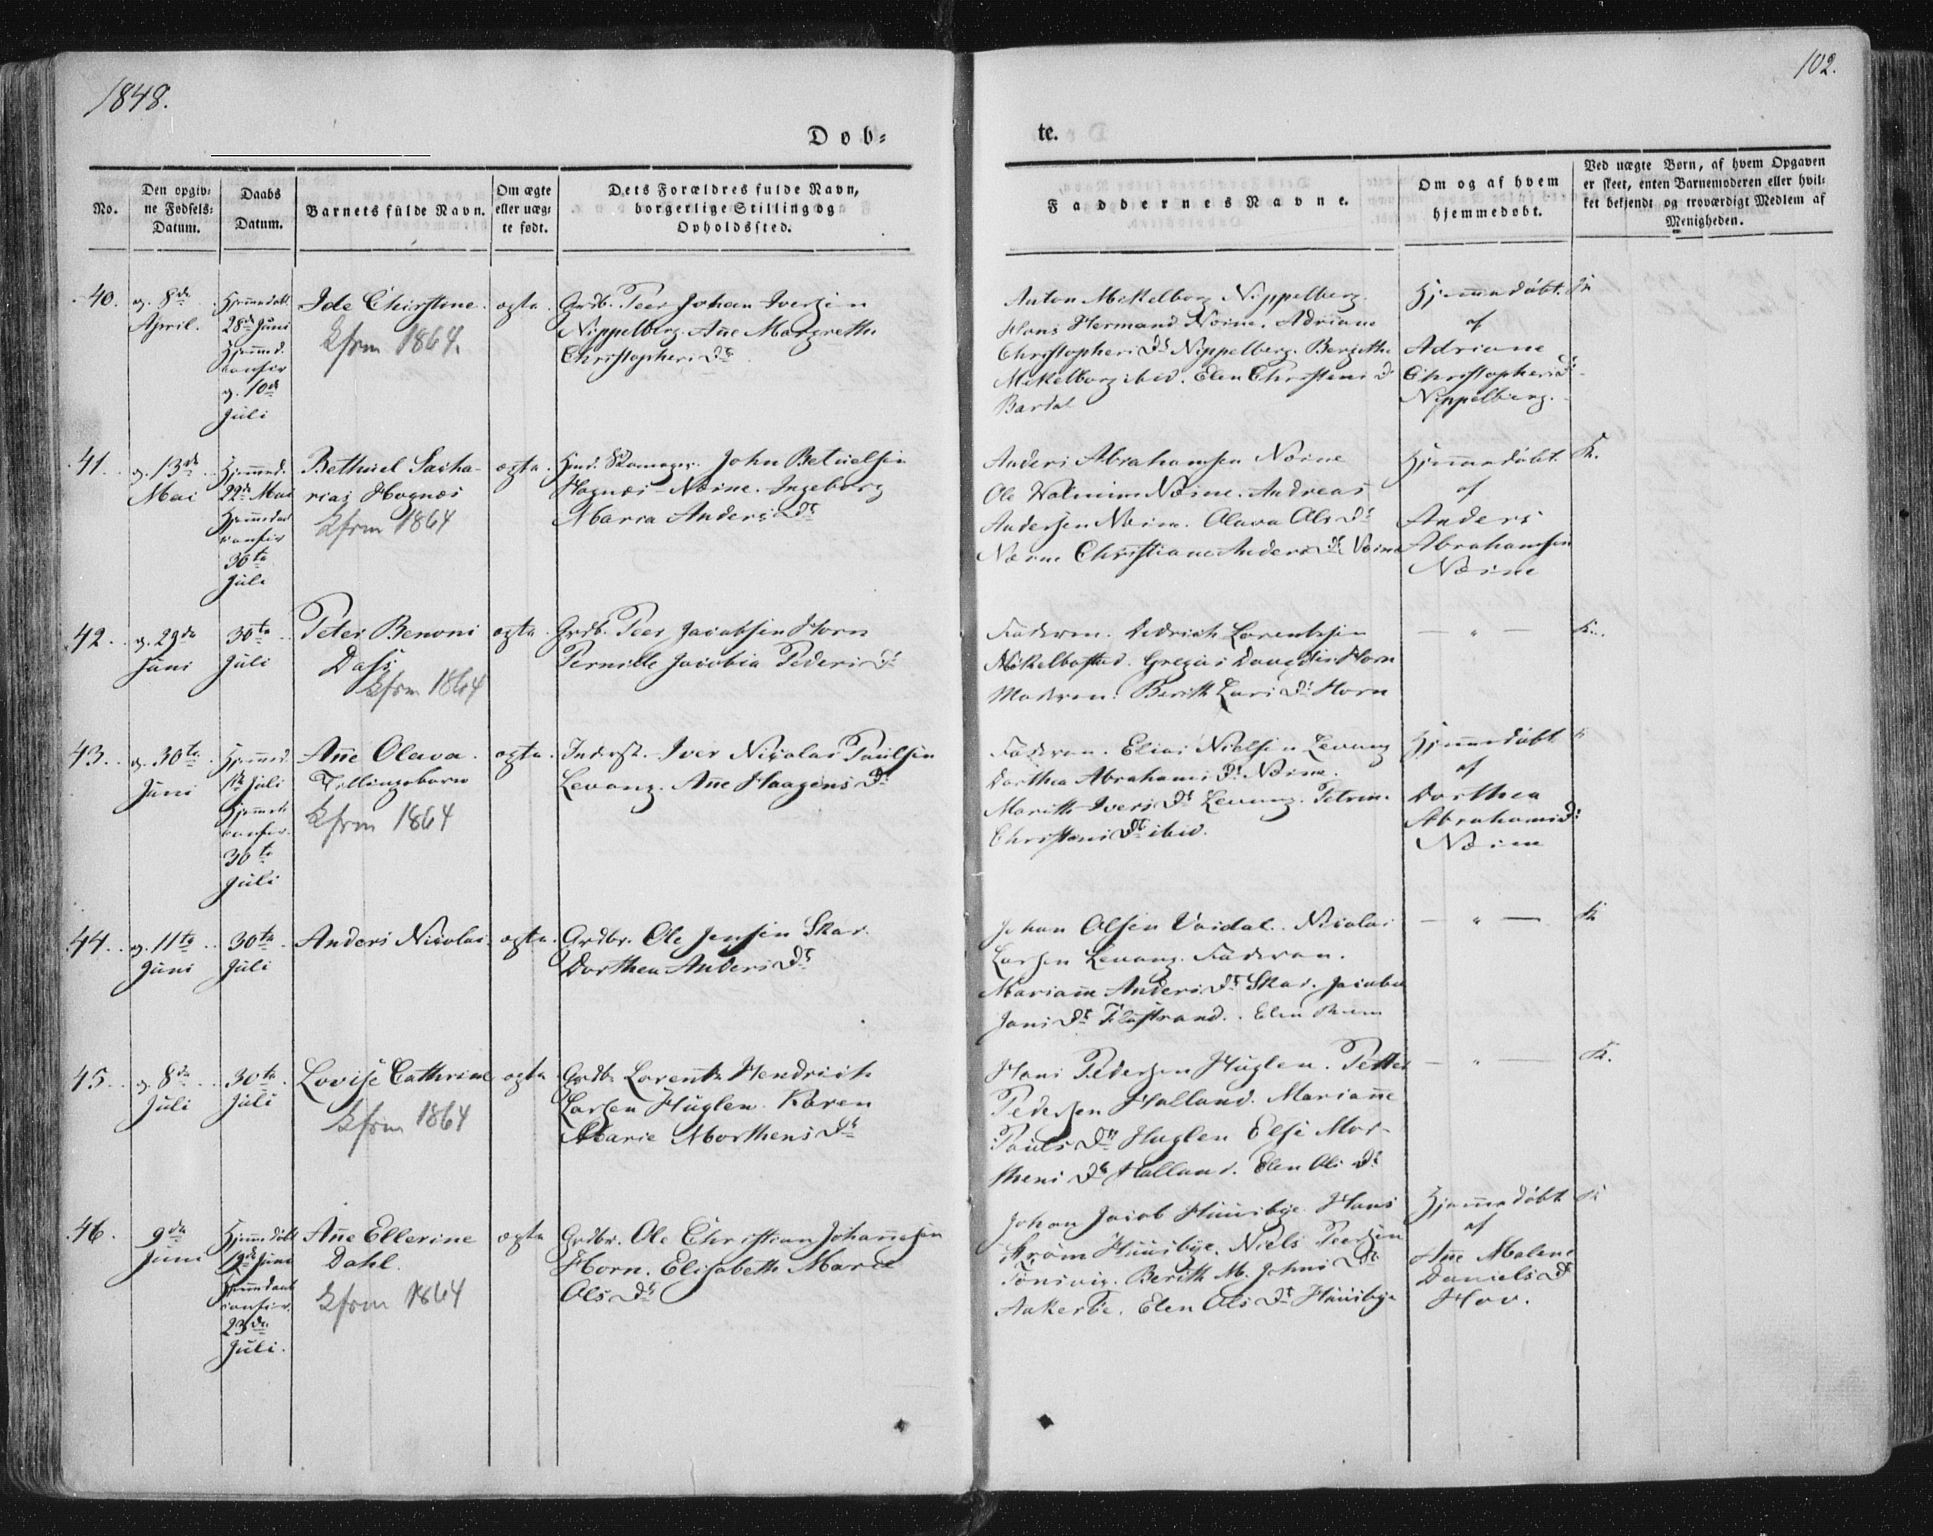 1848.
102.
Døb-
te.
No.
Den opgiv-
ne Fødsels-
Datum.
Daabs
Datum.
Barnets fulde Navn.
Om ægte
eller uæg-
te født.
Dets Forældres fulde Navn,
borgerlige Stilling og
Opholdssted.
Faddernes Navne.
Om og af hvem
hjemmedøbt.
Ved uægte Børn, af hvem Opgaven
er skeet, enten Barnemoderen eller hvil-
ket bekjendt og troværdigt Medlem af
Menigheden.
40.
8de
April.
Hjemmedøbt
28de Juni
10de
Juli
Ide Christine
Kfrm 1864.
ægte.
Grdb. Peer Johan Iversen
Nippelberg. Ane Margrethe
Christophers Dr
Anton Mikelborg Nippelberg.
Hans Hermand Adriane
Christophers Dr Nippelberg. Bergithe
Mikelborg ibid. Elen Christens Dr
Bardal
Hjemmedøbt
af
Adriane
Christophers Dr
Nippelberg.
41.
13de
Mai
Hjemmed.
22de Mai
30te
Juli
Bethuel Sacha-
rias Hognæs
Kfrm 1864
ægte.
John Betuelsen
Hognæs Ingeborg
Maria Anders Dr
Anders Abrahamsen
Ole Andreas
Andersen Olava Ols Dr
Christiane Anders Dr
Hjemmedøbt
af
Anders
Abrahamsen
42.
29de
Juni
30te
Juli
Peter Benoni
Dass
Kfrm 1864
ægte.
Grdb. Peer Jacobsen Horn
Pernille Jacobia Peders Dr
Faderen. Didrich Lorentsen
Mikelbostad. Horn
Moderen. Berith Lars Dr Horn
— " —
43.
30te
Juni
Hjemmed.
Juli
30te
Juli
Ane Olava
Tvillingebørn
Kfrm 1864
ægte.
Inderst. Iver Nicolai Paulsen
Levang. Ane Haagens Dr
Faderen. Elias Nielsen Levang
Dorthea Abrahams Dr
Marith Ivers Dr Levang. Petrine
Christens Dr ibid.
Hjemmedøbt
af
Dorthea
Abrahams Dr
44.
11te
Juni
30te
Juli
Anders Nicolai
ægte.
Grdbr. Ole Jensen Skar.
Dorthea Anders Dr
Johan Olsen Nicolai
Larsen Levang. Faderen.
Mariane Anders Dr Skar. Jacoba
Jans Dr Flostrand. Elen
— " —
45.
8de
Juli
30te
Juli
Lovise Cathrine
Kfrm 1864
ægte
Grdbr Lorents Hendrich
Larsen Huglen. Karen
Marie Morthens Dr
Hans Pedersen Huglen. Petter
Pedersen Halland. Mariane
Pauls Dr Huglen Else Mor-
thens Dr Halland. Elen Ols Dr
— " —
46.
9de
Juni
Hjemmedøbt
Juni
23de
Juli.
Ane Ellerine
Dahl.
Kfrm 1864
ægte
Grdbr. Ole Christian Johanesen
Horn. Elisabeth Marie
Ols Dr
Johan Jacob Huusbye. Hans
Strøm Huusbye. Niels Peersen
Berith M. Johns Dr
Elen Ols Dr Huusbye
Hjemmedøbt
af
Ane Malene
Daniels Dr
Hov.